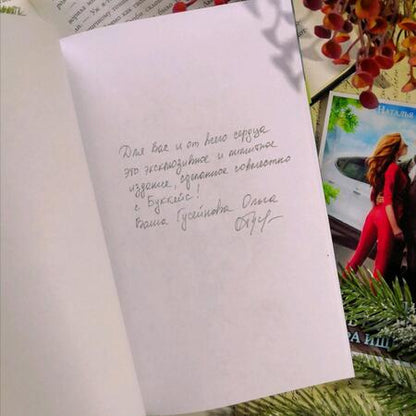 Для Вас и от всего сердца
это эксклюзивное и лимитное
издание, сделанное совместно
с Буккейс!
Ваша Гусейнова Ольга
Наталья
РА ИЩ